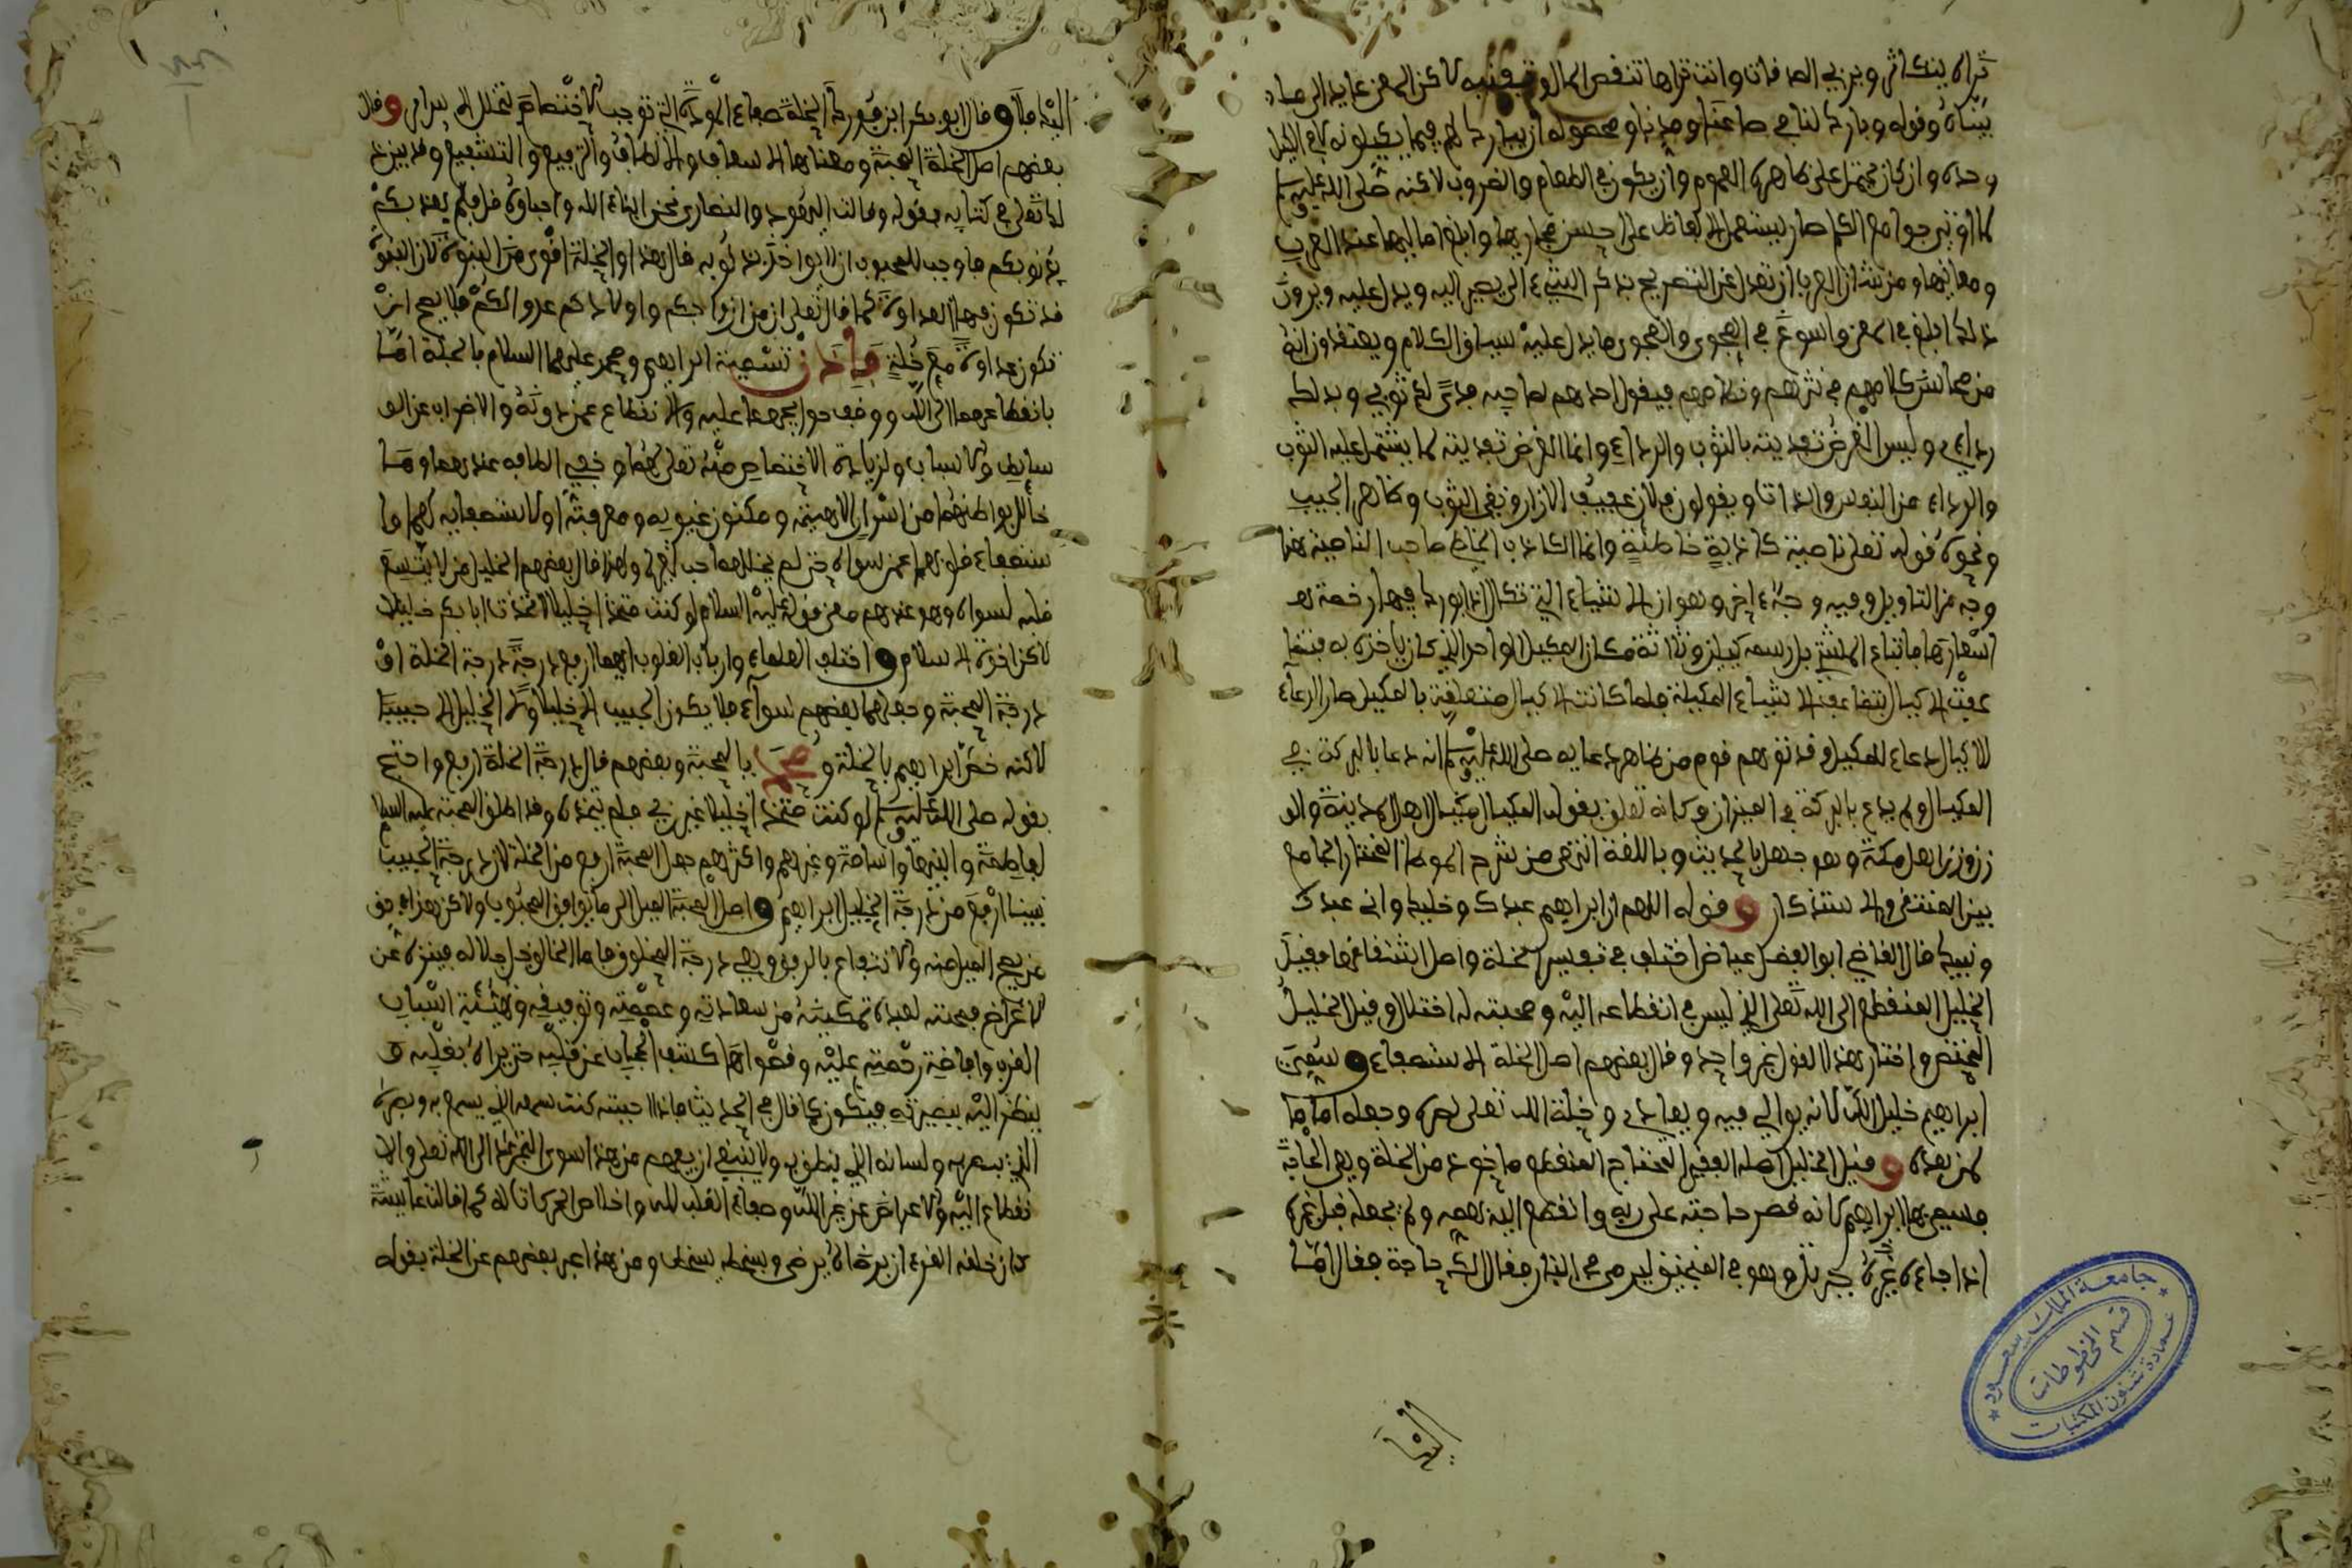 تراه يتكاثر ويربي الصدقات وانت تراها تنقص المال لاكن المعنى عايد الى ما
بيناه وقوله وبارك لنا في صاعنا ومدنا محصوله ان يبارك لهم فيما يكيلونه
وحده وان كان يحتمل على ظاهره العموم وان يكون في الطعام والضروب لاكنه صلى الله عليه وسلم
لما اوتي جوامع الكلم صار يستعمل الالفاظ على احسن مجاريها وابلغ اماليها عند العرب
ومعانيها ومن شان العرب ان تعدل عن التصريح بذكر الشيء الى يصير اليه ويدل عليه ويرون
ذلك ابلغ في المعنى واسوغ في الفحوى والفحوى ما يدل عليه سياق الكلام ويعتقدون انه
من محاسن كلامهم في نثرهم ونظامهم فيقول احدهم لصاحبه فدى لك ثوبي وفداك
رداءي وليس الغرض تفديته بالثوب والرداء وانما الغرض تفديته لما يشتمل عليه الثوب
والرداء من النفس والذات ويقولون فلان عفيف الازار ونقي الثوب وطاهر الجيب
ونحوه قوله تعلى ناصية كاذبة خاطئة وانما الكاذب الخاطئ صاحب الناصية هذا
وجه من التاويل وفيه وجه اخر وهو ان الاشياء التي تكال اذا بورك فيها رخصت
اسعارها فابتاع المشتري بدرهمه كيلين وثلاثة مكان المكيل الواحد الذي كان ياخذه به فتضا
عفت الاكيال بتضاعف الاشياء المكيلة فلما كانت الاكيال متعلقة بالمكيل صار الدعاء
للاكيال دعاء للمكيل وقد توهم قوم من ظاهر دعايه صلى الله عليه وسلم انه دعا بالبركة في
المكيال ولم يدع بالبركة في الميزان وكانه تعلق بقوله المكيال مكيال اهل المدينة والو
زن وزن اهل مكة وهو جهل بالحديث وباللغة انتهى من شرح الموطا المختار الجامع
بين المنتقى والاستذكار وقوله اللهم ان ابراهيم عبدك وخليلك واني عبدك
ونبيك قال القاضي ابو الفضل عياض اختلف في تفسير الخلة واصل اشتقاقها فقيل
الخليل المنقطع الى الله تعلى الذي ليس في انقطاعه اليه ومحبته له اختلال وقيل الخليل
المختص واختار هذا القول غير واحد وقال بعضهم اصل الخلة الاستصفاء وسمي
ابراهيم خليل الله لانه يوالي فيه ويعادي وخلة الله تعلى نصره وجعله اماما
لمن بعده وقيل الخليل اصله الفقير المحتاج المنقطع ماخوذ من الخلة وهي الحاجة
فسمي بها ابراهيم لانه قصر حاجته على ربه وانقطع اليه بهمه ولم يجعله قبل غيره
اذا جاءه جبريل وهو في المنجنيق ليرمى في النار فقال الك حاجة فقال اما
اليك
اليك فلا وقال ابو بكر ابن فورك الخلة صفاء المودة التي توجب الاختصاص بتخلل الاسرار وقال
بعضهم اصل الخلة المحبة ومعناها الاسعاف والالطاف والترفيع والتشفيع وقد بين ذ
لك تعلى في كتابه بقوله وقالت اليهود والنصارى نحن ابناء الله واحباؤه قل فلم يعذبكم
بذنوبكم فاوجب للمحبوب ان لا يواخذ بذنوبه قال هذا والخلة اقوى من البنوة لان البنوة
قد تكون فيها العداوة كما قال تعلى ان من ازواجكم واولادكم عدوا لكم فلا يصح ان
تكون عداوة مع خلة فاذن تسمية ابراهيم ومحمد عليهما السلام بالخلة اما
بانقطاعهما الى الله ووقف حوايجهما عليه والانقطاع عمن دونه والاضراب عن الو
سايط والاسباب ولزيادة الاختصاص منه تعلى لهما وخفي الطافه عندهما وما
خالل بواطنهما من اسرار الاهيته ومكنون غيوبه ومعرفته او لاستصفايه لهما وا
ستصفاء قلوبهما عمن سواه حتى لم يخاللهما حب لغيره ولهذا قال بعضهم الخليل من لا يتسع
قلبه لسواه وهو عندهم معنى قوله عليه السلام لو كنت متخذا خليلا لاتخذت ابا بكر خليلا
لاكن اخوة الاسلام واختلف العلماء وارباب القلوب ايهما ارفع درجة درجة الخلة او
درجة المحبة وجعلهما بعضهم سواء فلا يكون الحبيب الا خليلا ولا الخليل الا حبيبا
لاكنه خص ابراهيم بالخلة ومحمد بالمحبة وبعضهم قال درجة الخلة ارفع واحتج
بقوله صلى الله عليه وسلم لو كنت متخذا خليلا غير ربي فلم يتخذه وقد اطلق المحبة عليه السلام
لفاطمة وابنيها واسامة وغيرهم واكثرهم جعل المحبة ارفع من الخلة لان درجة الحبيب
نبينا ارفع من درجة الخليل ابراهيم واصل المحبة الميل الى ما يوافق المحبوب ولاكن هذا في حق
من يصح الميل منه والانتفاع بالرفق وهي درجة المخلوق فاما الخالق جل جلاله فمنزه عن
الاعراض فمحبته لعبده تمكينه من سعادته وعصمته وتوفيقه وتهيئة اسباب
القرب وافاضة رحمته عليه وقصواها كشف الحجاب عن قلبه حتى يراه بقلبه و
ينظر اليه ببصيرته فيكون كما قال في الحديث فاذا احببته كنت سمعه الذي يسمع به وبصره
الذي يبصر به ولسانه الذي ينطق به ولا ينبغي ان يفهم من هذا سوى التجرد الى الله تعلى والا
نقطاع اليه والاعراض عن غير الله وصفاء القلب لله واخلاص الحركات له كما قالت عايشة
كان خلقه القرءان برضاه يرضى وبسخطه يسخط ومن هذا عبر بعضهم عن الخلة بقوله
جامعة الملك سعود
قسم المخطوطات
عمادة شئون المكتبات